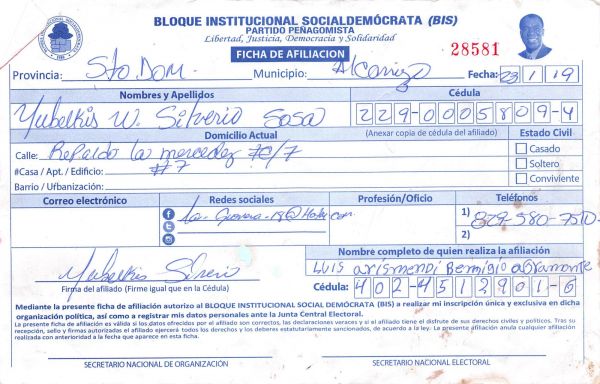 BLOQUE INSTITUCIONAL SOCIALDEMÓCRATA (BIS)
PARTIDO PEÑAGOMISTA
Libertad, Justicia, Democracia y Solidaridad
FICHA DE AFILIACION
28581
Provincia: Sto Dom. Municipio: Alcarrizo Fecha: 23/1/19
Nombres y Apellidos Cédula
Yubelkis W. Silverio Sosa 229-0005809-4
Domicilio Actual (Anexar copia de cédula del afiliado) Estado Civil
Calle: Repaldo la mercedez
#Casa / Apt. / Edificio: #7
Barrio / Urbanización:
Casado
Soltero
Conviviente
Correo electrónico Redes sociales Profesión/Oficio Teléfonos
1) 829-580-7510
2)
Nombre completo de quien realiza la afiliación
Yubelkis Silverio LUIS arismendi Remigio agramonte
Firma del afiliado (Firme igual que en la Cédula) Cédula: 402-4512901-6
Mediante la presente ficha de afiliación autorizo al BLOQUE INSTITUCIONAL SOCIAL DEMÓCRATA (BIS) a realizar mi inscripción única y exclusiva en dicha
organización política, así como a registrar mis datos personales ante la Junta Central Electoral.
La presente ficha de afiliación es válida si los datos ofrecidos por el afiliado son correctos, las declaraciones veraces y si el afiliado tiene el disfrute de sus derechos civiles y políticos. Tras su
recepción, sello y firmas autorizadas el afiliado ejercerá todos los derechos y los deberes estatutariamente sancionados, de acuerdo a la ley. La presente afiliación anula cualquier afiliación
realizada con anterioridad a la fecha que aparece en esta ficha.
SECRETARIO NACIONAL DE ORGANIZACIÓN SECRETARIO NACIONAL ELECTORAL